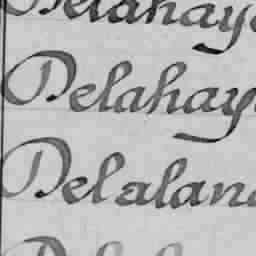 Delahay
Delahay
Delalan